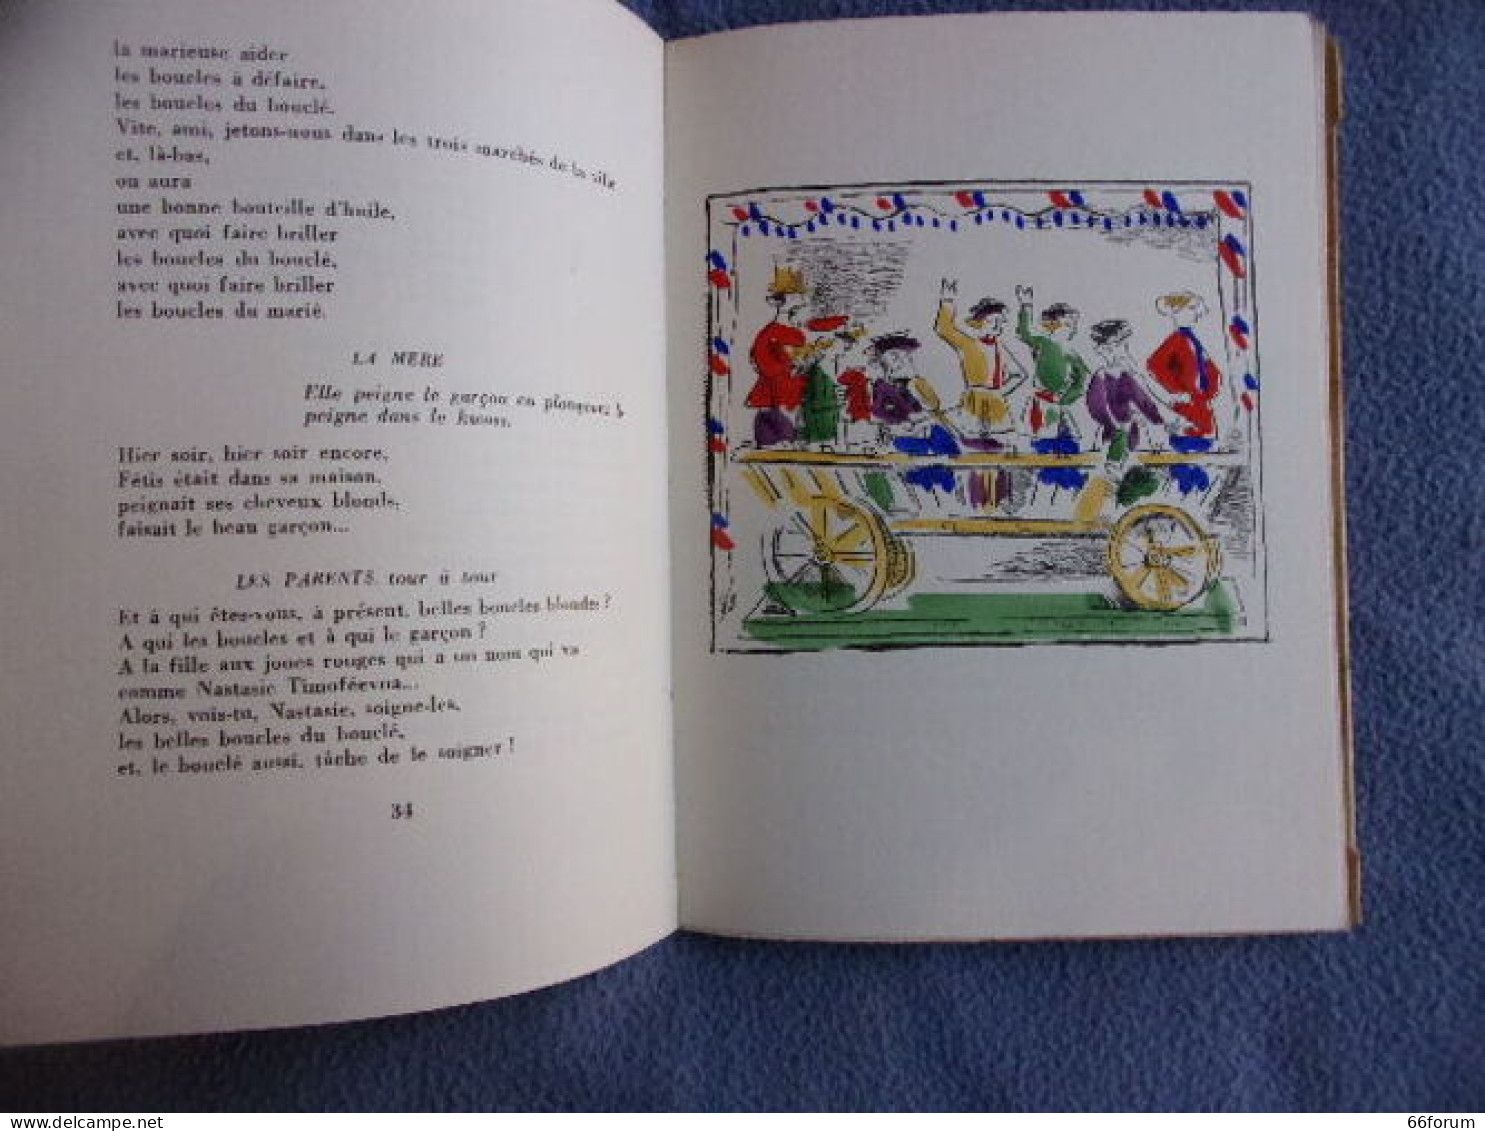 la marieuse aider
les boucles à défaire,
les boucles du bouclé.
Vite, ami, jetons-nous dans les trois marchés de la ville
et, là-bas,
on aura
une bonne bouteille d'huile,
avec quoi faire briller
les boucles du bouclé,
avec quoi faire briller
les boucles du marié.
LA MÈRE
Elle peigne le garçon en plongeant le
peigne dans le kwass.
Hier soir, hier soir encore,
Fétis était dans sa maison,
peignait ses cheveux blonds,
faisait le beau garçon...
LES PARENTS, tour à tour
Et à qui êtes-vous, à présent, belles boucles blondes ?
A qui les boucles et à qui le garçon ?
A la fille aux joues rouges qui a un nom qui va
comme Nastasie Timoféevna...
Alors, vois-tu, Nastasie, soigne-les,
les belles boucles du bouclé,
et, le bouclé aussi, tâche de le soigner !
34
delcampe.net
66forum